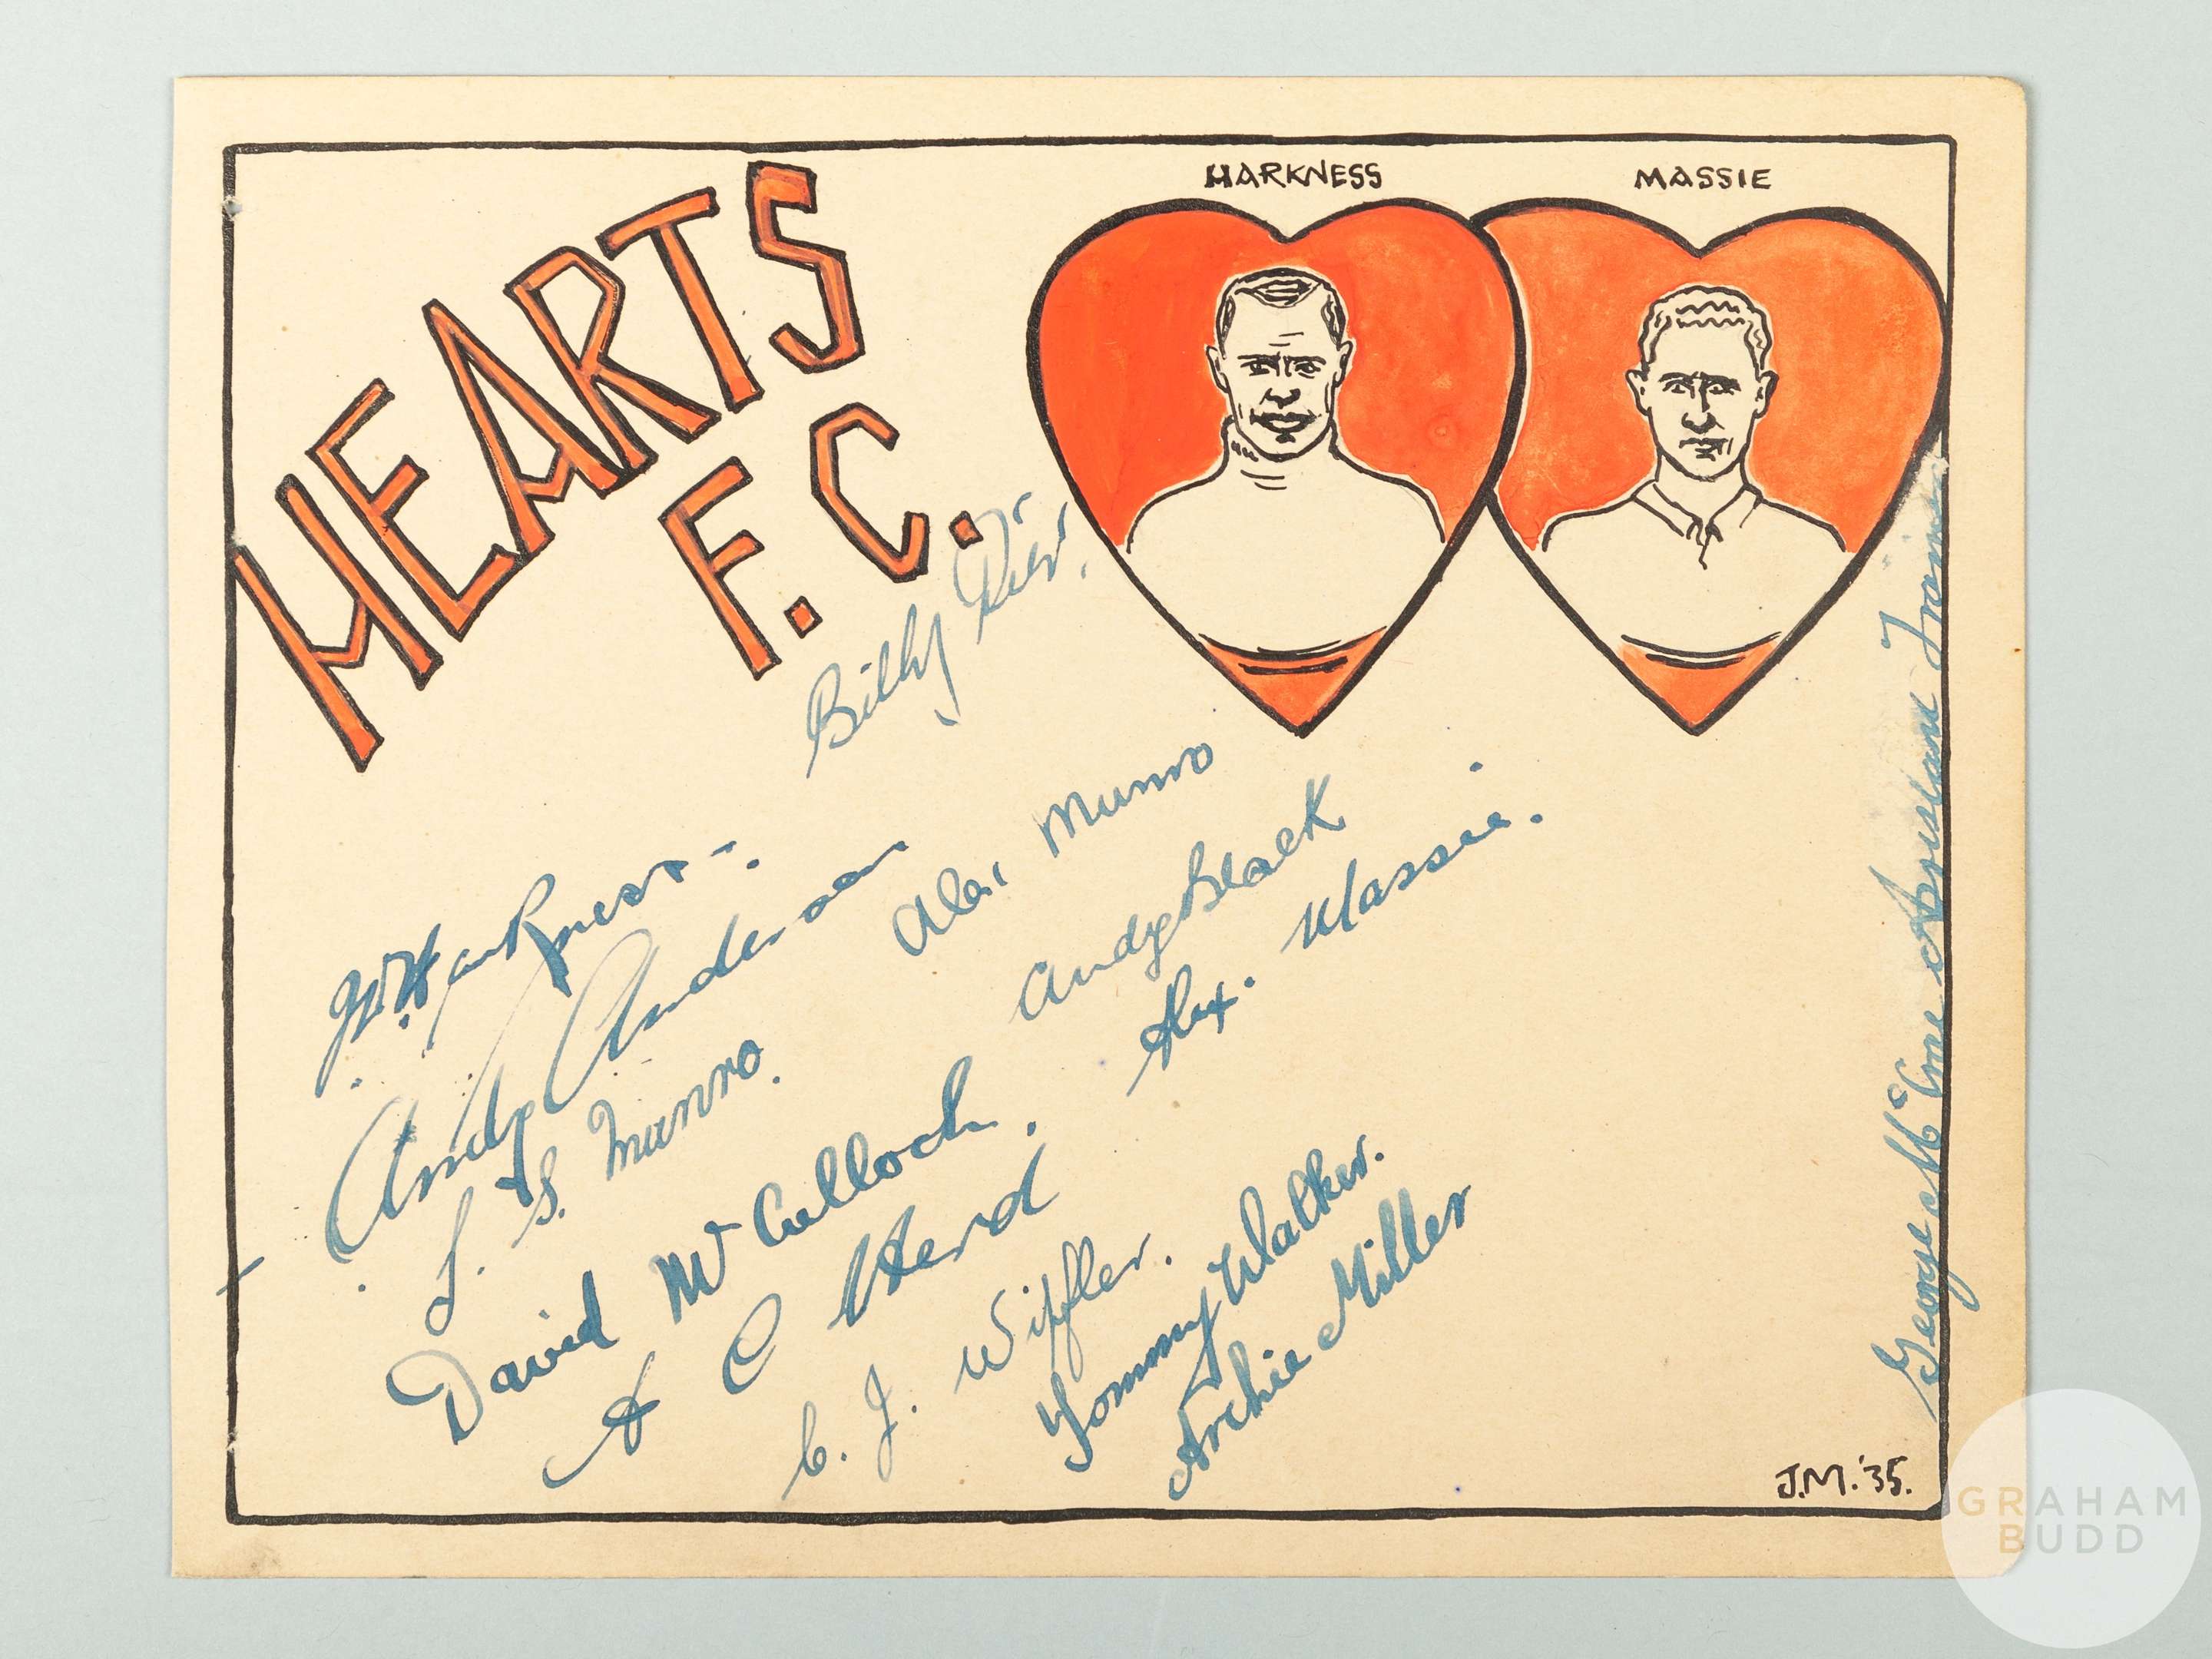 HEARTS
F. C.
HARKNESS
MASSIE
Billy
J. Harkness
Andy Anderson
Alex Munro
L. S. Munro.
Andy Black
David McCulloch.
Alex. Massie.
A C Herd
C. J. Wipfler.
Tommy Walker.
Archie Miller
George Mc
J.M. '35.
GRAHAM
BUDD